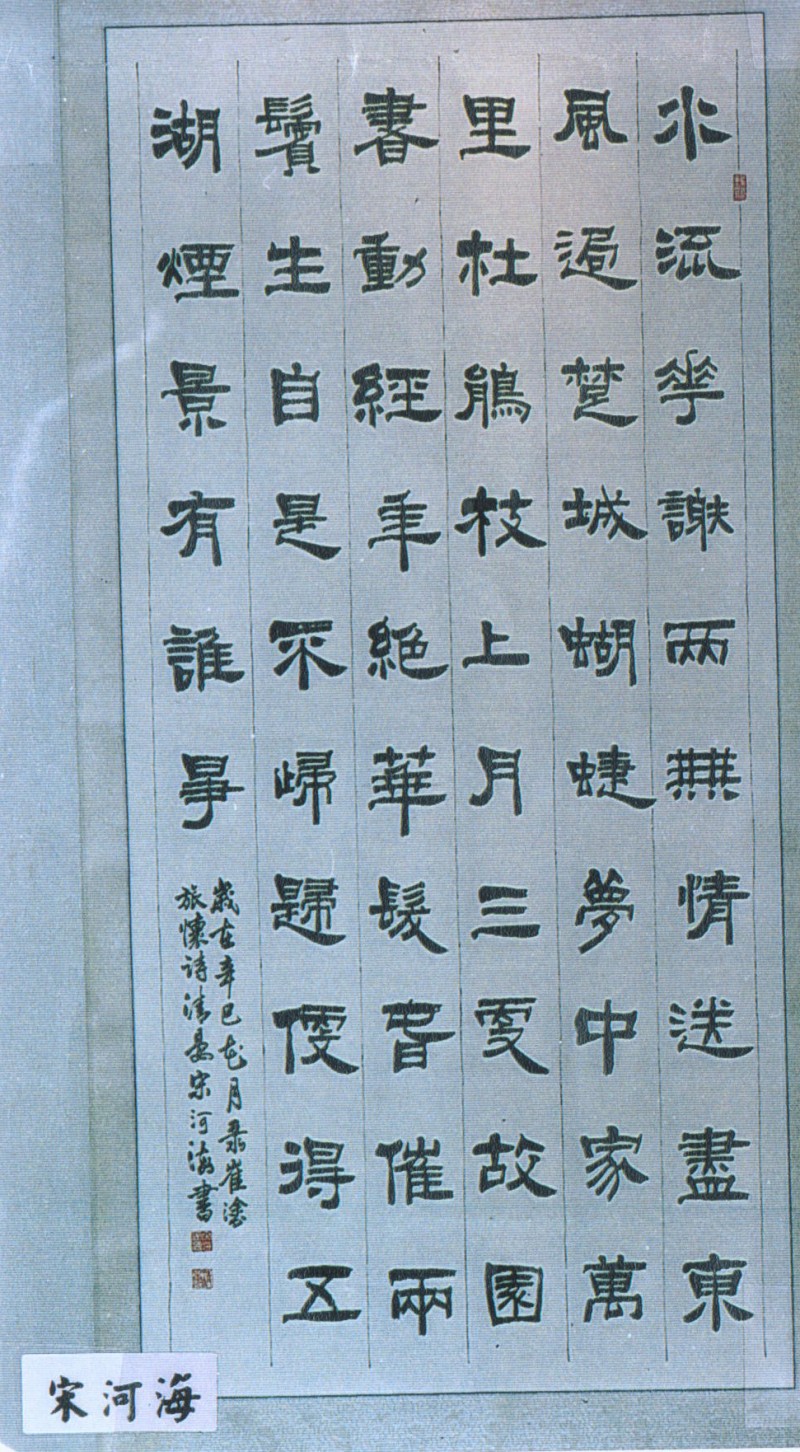 水流花謝两無情送盡東
風過楚城蝴蝶夢中家萬
里杜鵑枝上月三更故園
書動經年絕華髮春催兩
鬢生自是不歸歸便得五
湖煙景有誰爭
歲在辛巳花月录崔塗
旅懷詩清晏宋河海書
宋河海